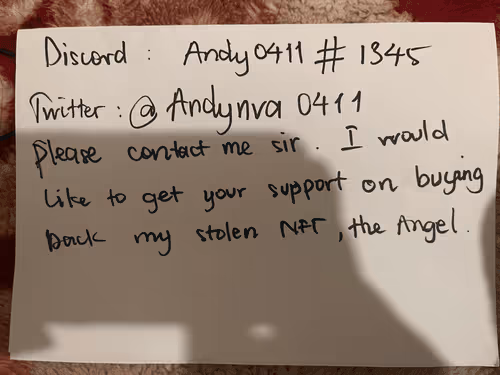 Discord : Andy0411 # 1345
Twitter : @ Andynva 0411
Please contact me sir. I would
like to get your support on buying
back my stolen NFT, the Angel.